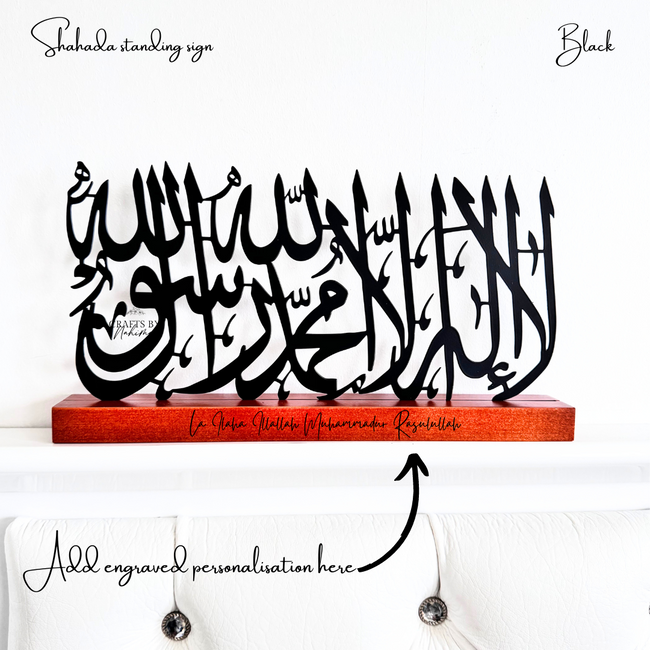 Shahada standing sign
Black
لا إله إلا الله محمد رسول الله
CRAFTS BY
Nahima
La Ilaha Illallah Muhammadur Rasulullah
Add engraved personalisation here